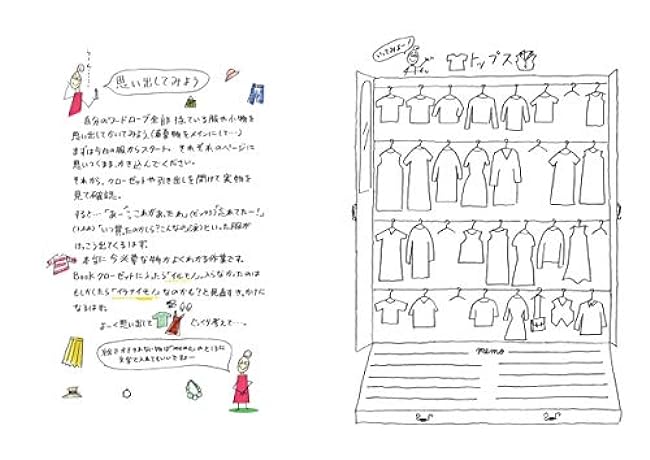 思い出してみよう
自分のワードローブ全部、持っている服や小物を
思い出してかいてみよう。(夏冬物をメインにして…)
まずは今日の服からスタート。それぞれのページに
思いつくまま、かき込んでください。
それから、クローゼットや引き出しを開けて実物を
見て確認。
すると…「あー、これがあったわ」(ビックリ)「忘れてたー!」
「いつ買ったのかしら?こんなの」といった服が
けっこう出てくるはず。
本当に今必要な物がよくわかる作業です。
Bookクローゼットに入ったら「イルモノ」、入らなかったのは
もしかしたら「イラナイモノ」なのかも?と見直すきっかけに
なるはず。
よーく思い出して
じっくり考えて…。
いってみよー!
トップス
memo